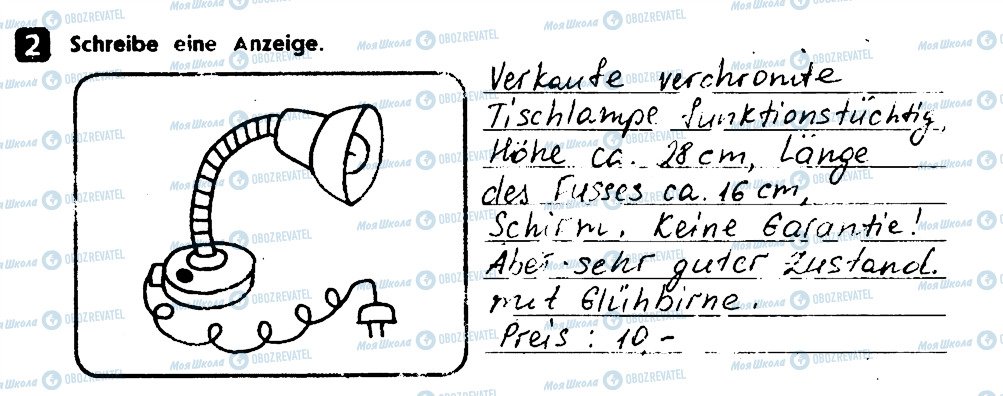 2 Schreibe eine Anzeige.
Verkaufe verchromte
Tischlampe funktionstüchtig,
Höhe ca. 28 cm, Länge
des Fusses ca. 16 cm,
Schirm. Keine Garantie!
Aber sehr guter Zustand.
mit Glühbirne.
Preis : 10,-
МОЯ ШКОЛА OBOZREVATEL